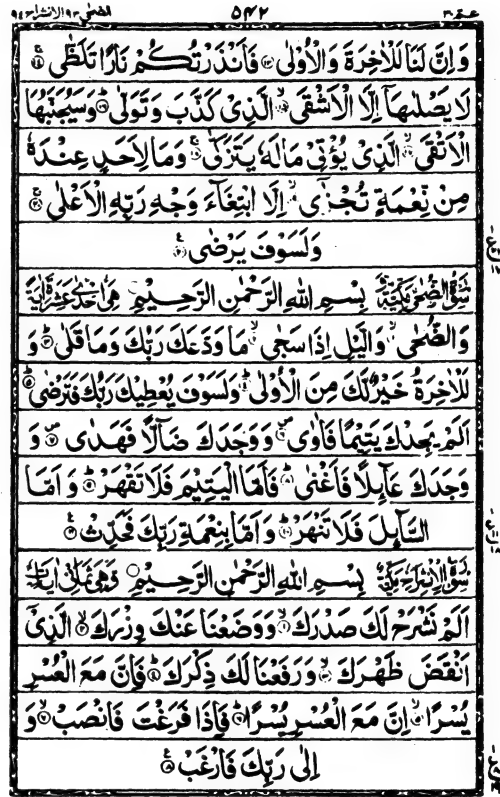 عـم ٣٠ ٥٤٢ الضحى ٩٣ الانشراح ٩٤
وَاِنَّ لَنَا لَلْاٰخِرَةَ وَالْاُوْلٰى ۝١٣ فَاَنْذَرْتُكُمْ نَارًا تَلَظّٰى ۝١٤
لَا يَصْلٰىهَاۤ اِلَّا الْاَشْقَى ۝١٥ الَّذِیْ كَذَّبَ وَتَوَلّٰى ۝١٦ وَسَيُجَنَّبُهَا
الْاَتْقَى ۝١٧ الَّذِیْ يُؤْتِیْ مَالَهٗ يَتَزَكّٰى ۝١٨ وَمَا لِاَحَدٍ عِنْدَهٗ
مِنْ نِّعْمَةٍ تُجْزٰۤى ۝١٩ اِلَّا ابْتِغَآءَ وَجْهِ رَبِّهِ الْاَعْلٰى ۝٢٠
وَلَسَوْفَ يَرْضٰى ۝٢١
سُوْرَةُ الضُّحٰى مَكِّيَّةٌ بِسْمِ اللهِ الرَّحْمٰنِ الرَّحِيْمِ هِیَ اِحْدٰى عَشْرَةَ اٰيَةً
وَالضُّحٰى ۝١ وَالَّيْلِ اِذَا سَجٰى ۝٢ مَا وَدَّعَكَ رَبُّكَ وَمَا قَلٰى ۝٣ وَ
لَلْاٰخِرَةُ خَيْرٌ لَّكَ مِنَ الْاُوْلٰى ۝٤ وَلَسَوْفَ يُعْطِيْكَ رَبُّكَ فَتَرْضٰى ۝٥
اَلَمْ يَجِدْكَ يَتِيْمًا فَاٰوٰى ۝٦ وَوَجَدَكَ ضَآلًّا فَهَدٰى ۝٧ وَ
وَجَدَكَ عَآئِلًا فَاَغْنٰى ۝٨ فَاَمَّا الْيَتِيْمَ فَلَا تَقْهَرْ ۝٩ وَاَمَّا
السَّآئِلَ فَلَا تَنْهَرْ ۝١٠ وَاَمَّا بِنِعْمَةِ رَبِّكَ فَحَدِّثْ ۝١١
سُوْرَةُ الْاِنْشِرَاحِ مَكِّيَّةٌ بِسْمِ اللهِ الرَّحْمٰنِ الرَّحِيْمِ وَهِیَ ثَمَانِیْ اٰيَاتٍ
اَلَمْ نَشْرَحْ لَكَ صَدْرَكَ ۝١ وَوَضَعْنَا عَنْكَ وِزْرَكَ ۝٢ الَّذِیْۤ
اَنْقَضَ ظَهْرَكَ ۝٣ وَرَفَعْنَا لَكَ ذِكْرَكَ ۝٤ فَاِنَّ مَعَ الْعُسْرِ
يُسْرًا ۝٥ اِنَّ مَعَ الْعُسْرِ يُسْرًا ۝٦ فَاِذَا فَرَغْتَ فَانْصَبْ ۝٧ وَ
اِلٰى رَبِّكَ فَارْغَبْ ۝٨